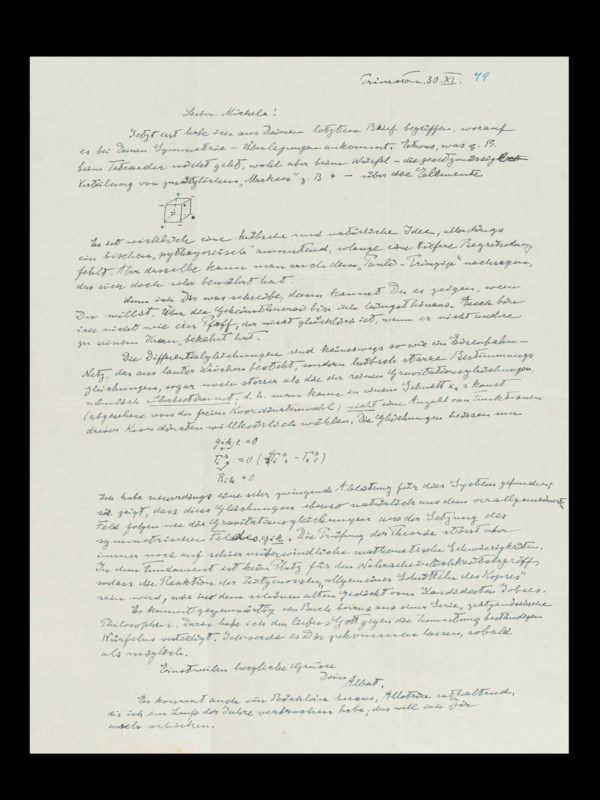 Princeton. 30. XI. 49
Lieber Michele!
Jetzt erst habe ich aus Deinem letzten Brief begriffen, worauf
es bei Deinen Symmetrie-Überlegungen ankommt. Etwas, was z. B.
beim Tetraeder nicht geht, wohl aber beim Würfel – die gesetzmässige
Verteilung von zusätzlichen „Marken" z. B + - über die Elemente
Es ist wirklich eine hübsche und natürliche Idee, allerdings
ein bischen „pythagoreisch" anmutend, solange eine tiefere Begründung
fehlt. Aber dasselbe kann man auch dem „Pauli-Prinzip" nachsagen,
das sich doch sehr bewährt hat.
Wenn ich Dir was schreibe, dann kannst Du es zeigen, wem
Du willst. Über die Geheimtuerei bin ich längst hinaus. Auch bin
ich nicht wie der Pfaff, der nicht glücklich ist, wenn er nicht andre
zu seinem Kram bekehrt hat.
Die Differentialgleichungen sind keineswegs so wie ein Eisenbahn-
Netz, das aus lauter Weichen besteht, sondern hübsch starke Bestimmungs
gleichungen, sogar noch stärker als die der reinen Gravitationsgleichungen,
nämlich überbestimmt; d. h. man kann in einem Schnitt x4 = konst
(abgesehen von der freien Koordinatenwahl) nicht eine Anzahl von Funktionen
dreier Koordinaten willkürlich wählen. Die Gleichungen heissen nun
gik;l = 0
= 0
Rik = 0
Ich habe neuerdings eine sehr zwingende Ableitung für dies System gefunden;
sie zeigt, dass diese Gleichungen ebenso natürlich aus dem verallgemeinerten
Feld folgen wie die Gravitationsgleichungen aus der Setzung des
symmetrischen Feldes gik. Die Prüfung der Theorie stösst aber
immer noch auf schier unüberwindliche mathematische Schwierigkeiten.
In dem Fundament ist kein Platz für den Wahrscheinlichkeitsbegriff,
sodass die Reaktion der Zeitgenossen „allgemeines Schütteln des Kopfes"
sein wird, wie in dem schönen alten Gedicht vom Kandidaten Jobses.
Es kommt gegenwärtig ein Buch heraus aus einer Serie, zeitgenössische
Philosophen. Darin habe ich den lieben Gott gegen die Zumutung beständigen
Würfelns verteidigt. Ich werde es Dir zukommen lassen, sobald
als möglich.
Einstweilen herzliche Grüsse
Dein
Albert.
Es kommt auch ein Büchlein heraus, Allotria enthaltend,
die ich im Laufe der Jahre verbrochen habe; das will ich Dir
auch schicken.